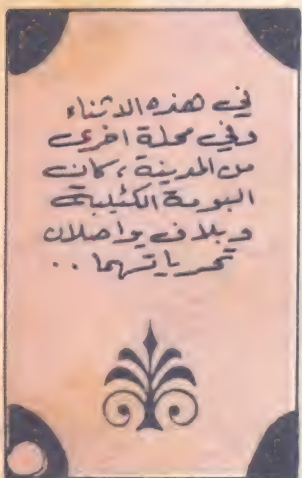 في هذه الاثناء
وفي محلة اخرى
من المدينة ، كان
البومة الكئيبة
وبلاف يواصلان
تحرياتهما ..